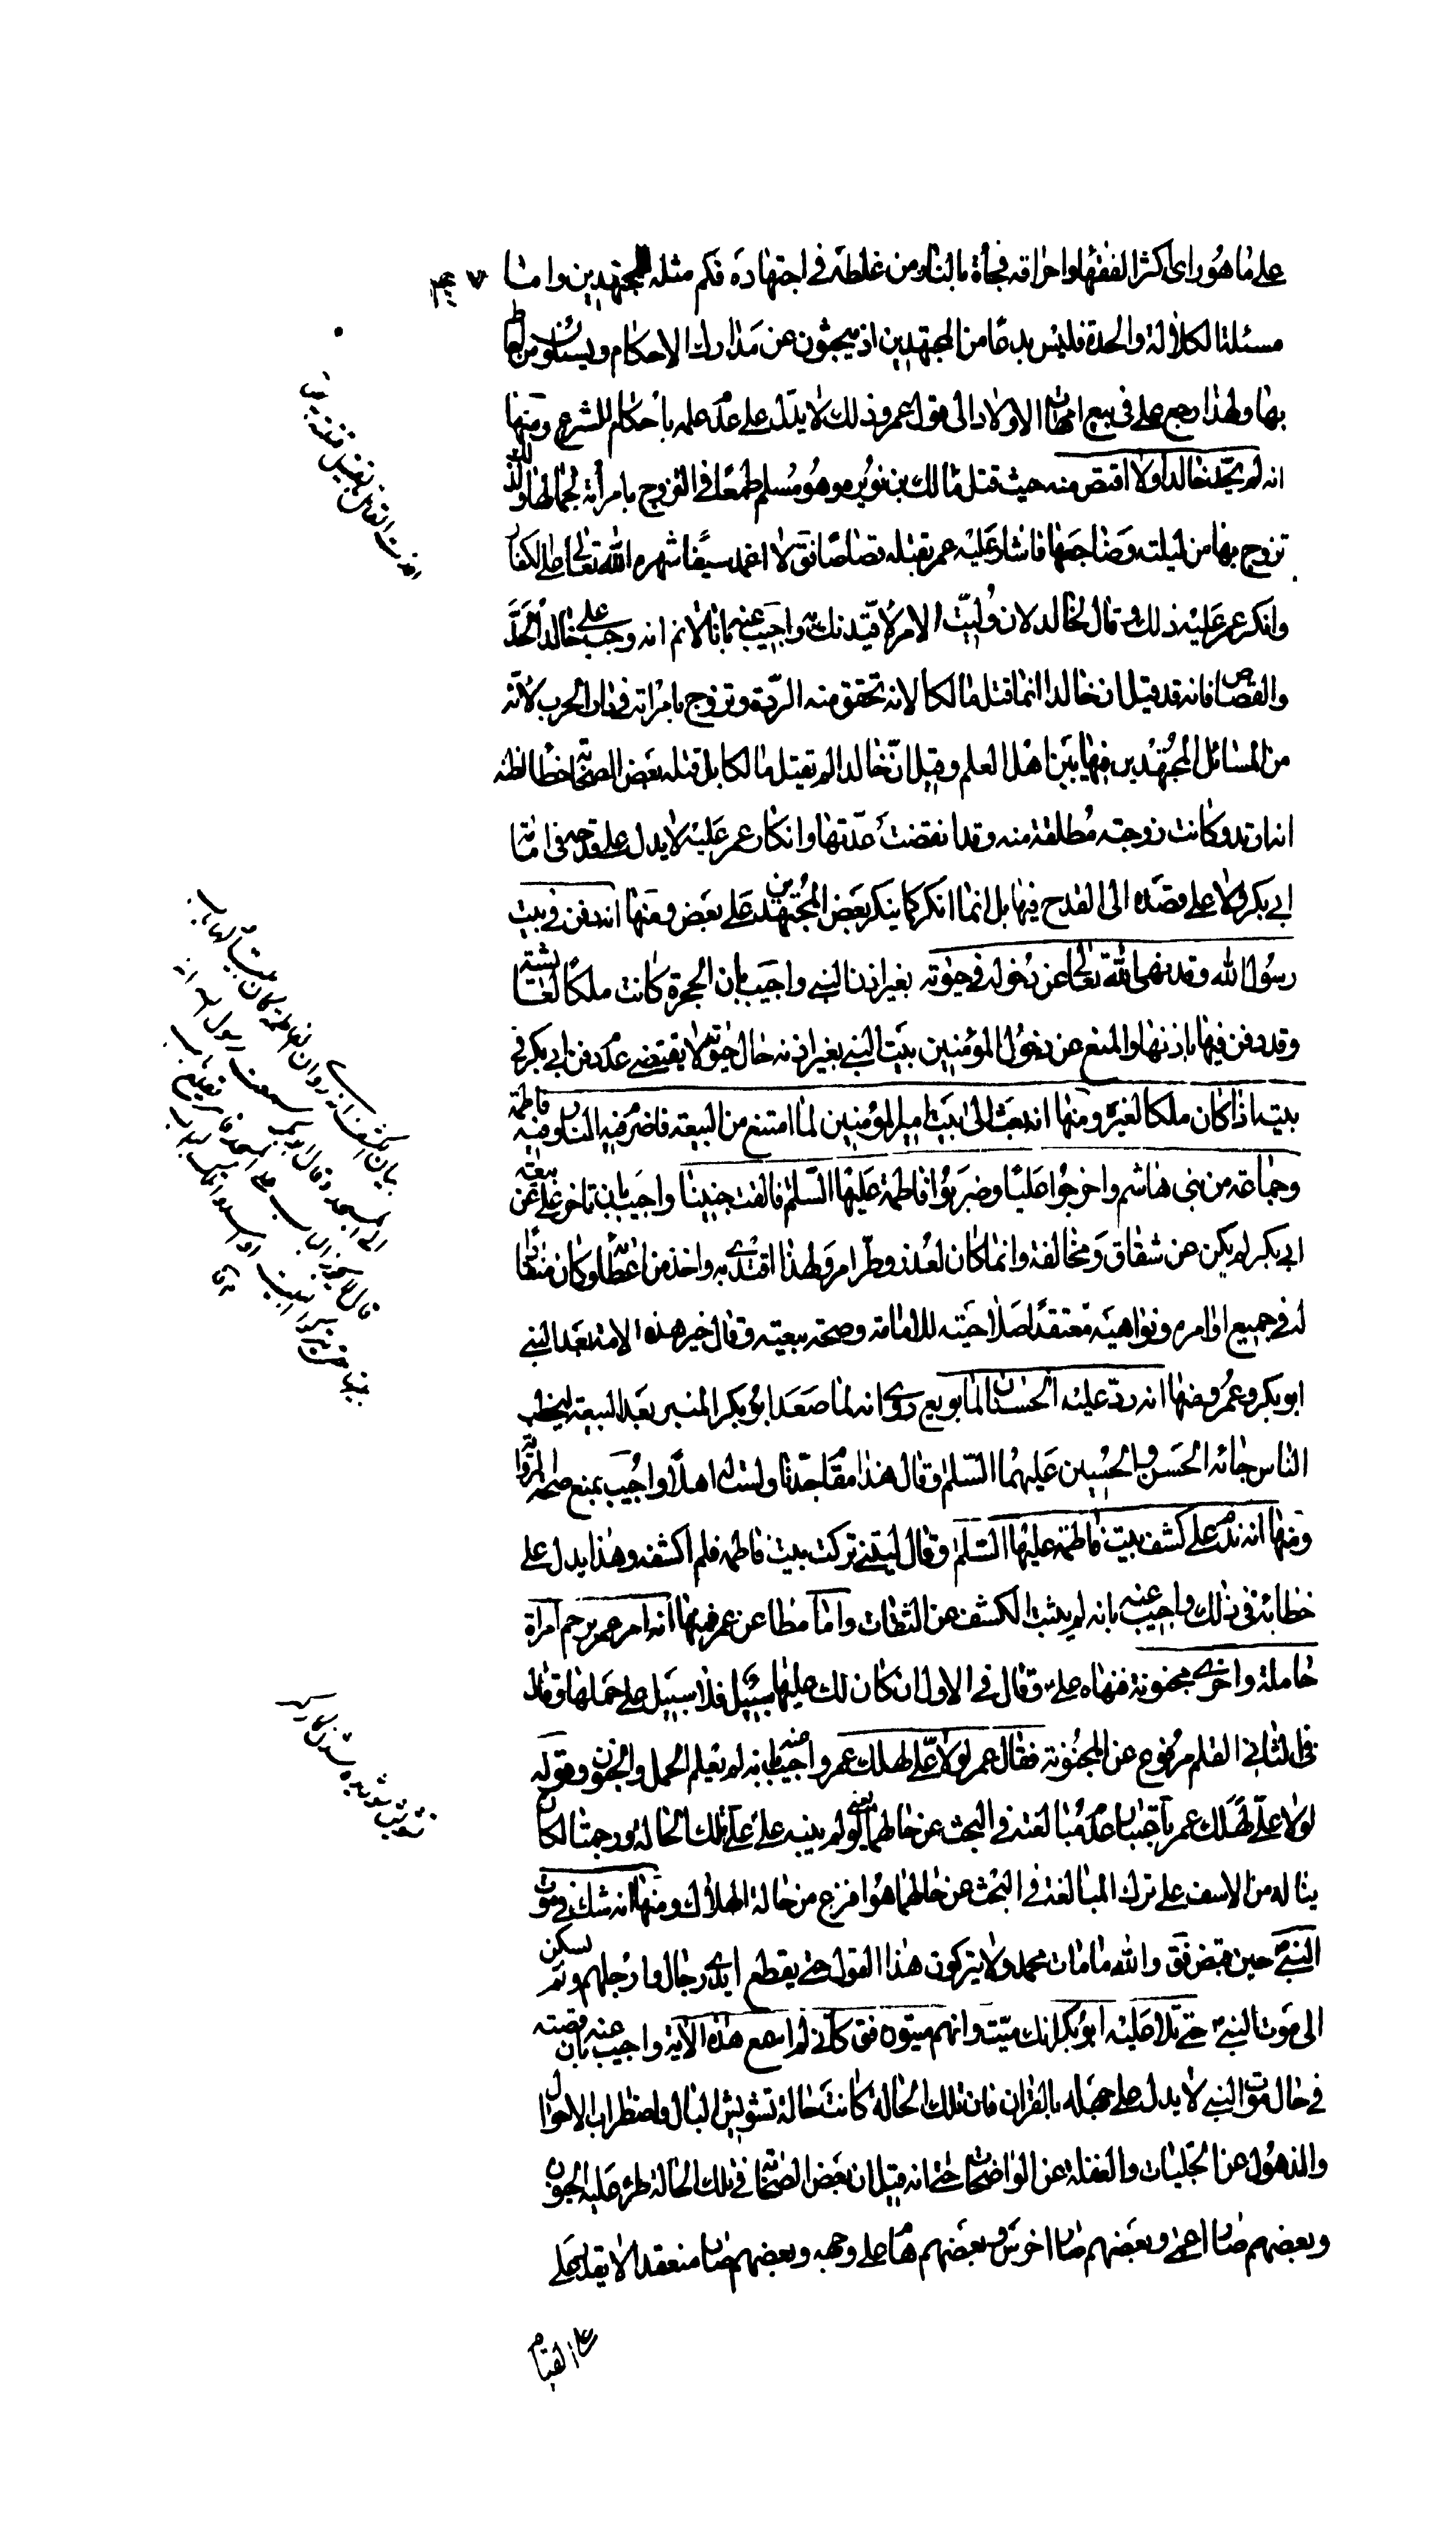 على ما هو رأى اكثر الفقهاء واحراقه فجأة بالنار من غلطه فى اجتهاده فكم مثله للمجتهدين واما
مسئلة الكلالة والجدة فليس بدعا من المجتهدين اذ يبحثون عن مدارك الاحكام ويسئلون من احاط
بها ولهذا رجع على فى بيع امهات الاولاد الى قول عمر وذلك لا يدل على عدم علمه باحكام الشرع ومنها
انه لم يحد خالدا ولا اقتص منه حيث قتل مالك بن نويره وهو مسلم طمعا فى التزوج بامرأته لجمالها ولذلك
تزوج بها من ليلته وضاجعها فاشار عليه عمر بقتله قصاصا فق لا اغمد سيفا شهره الله تعالى على الكفار
وانكر عمر عليه ذلك وقال لخالد لان وليت الامر لاقيدنك به واجيب عنه بانا لانم انه وجب على خالد الحد
والقصاص فانه قد قيل ان خالدا انما قتل مالكا لانه تحقق منه الردة وتزوج بامراته فى دار الحرب لانه
من المسائل المجتهدين فيها بين اهل العلم وقيل ان خالدا لم يقتل مالكا بل قتله بعض الصحابة خطأ لظنه
انه ارتد وكانت زوجته مطلقة منه وقد انقضت عدتها وانكار عمر عليه لا يدل على قدحه فى امامة
ابى بكر ولا على قصده الى القدح فيها بل انما انكر كما ينكر بعض المجتهدين على بعض ومنها انه دفن فى بيت
رسول الله وقد نهى الله تعالى عن دخوله فى حيوته بغير اذن النبى واجيب بان الحجرة كانت ملكا لعائشة
وقد دفن فيها باذنها والمنع عن دخول المؤمنين بيت النبى بغير اذنه حال حيوته لا يقتضى عدم دفن ابى بكر فى
بيته اذا كان ملكا لغيره ومنها انه بعث الى بيت امير المؤمنين لما امتنع من البيعة فاضرم فيه النار وفيه فاطمة
وجماعة من بنى هاشم واخرجوا عليا وضربوا فاطمة عليها السلم فالقت جنينا واجيب بان تاخر على عن بيعة
ابى بكر لم يكن عن شقاق ومخالفة وانما كان لعذر وطرّ امر ولهذا اقتدى به واخذ من عطائه وكان منقادا
له فى جميع اوامره ونواهيه معتقدا صلاحيته للامامة وصحة بيعته وقال خير هذه الامة بعد النبى
ابو بكر وعمر ومنها انه رد عليه الحسنان لما بويع روى انه لما صعد ابو بكر المنبر بعد البيعة ليخطب
الناس جائه الحسن والحسين عليهما السلم وقال هذا مقام جدنا ولست له اهلا واجيب بمنع صحة الرواية
ومنها انه ندم على كشف بيت فاطمة عليها السلم وقال ليتنى تركت بيت فاطمه فلم اكشفه وهذا يدل على
خطائه فى ذلك واجيب عنه بانه لم يثبت الكشف عن الثقات واما مطاعن عمر فمنها انه امر عمر برجم امرأة
حاملة واخرى مجنونة فنهاه على وقال فى الاول ان كان لك عليها سبيل فلا سبيل على حملها وقال
فى الثانى القلم مرفوع عن المجنونة فقال عمر لولا على لهلك عمر واجيب عنه بانه لم يعلم الحمل والجنون وقوله
لولا على لهلك عمر باعتبار عدم مبالغته فى البحث عن حالهما يعنى لو لم ينبه على على تلك الحالة ورجمتا لكان
يناله من الاسف على ترك المبالغة فى البحث عن حالهما هو افزع من حالة الهلاك ومنها انه شك فى موت
النبى حين قبض فق والله ما مات محمد ولا يتركون هذا القول حتى يقطع ايدى رجال وارجلهم ولم يسكن
الى موت النبى حتى تلا عليه ابو بكر انك ميت وانهم ميتون فق كانى لم اسمع هذه الاية واجيب عنه بان قصته
فى حال موت النبى لا يدل على جهله بالقران فان تلك الحالة كانت حالة تشويش البال واضطراب الاحوال
والذهول عن الجليات والغفلة عن الواضحات حتى انه قيل ان بعض الصحابة فى تلك الحالة طرء عليه الجنون
وبعضهم صار اعمى وبعضهم صار اخرس وبعضهم هام على وجهه وبعضهم صار مقعدا لا يقدر على
القيام